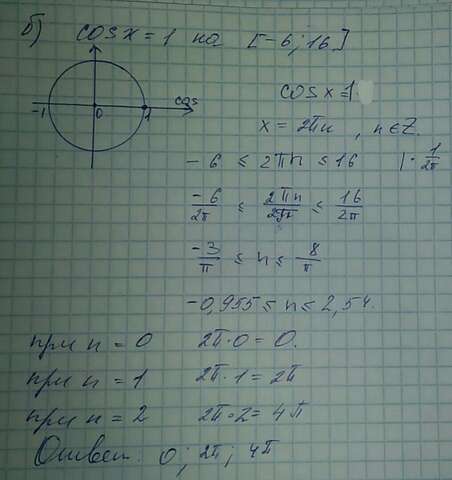 б) cos x = 1 на [-6; 16]
-1 0 1 cos
cos x = 1
x = 2πn, n ∈ Z.
-6 ≤ 2πn ≤ 16 | · 1/2π
-6/2π ≤ 2πn/2π ≤ 16/2π
-3/π ≤ n ≤ 8/π
-0,955 ≤ n ≤ 2,54.
при n = 0 2π·0 = 0.
при n = 1 2π·1 = 2π
при n = 2 2π·2 = 4π
Ответ: 0; 2π; 4π